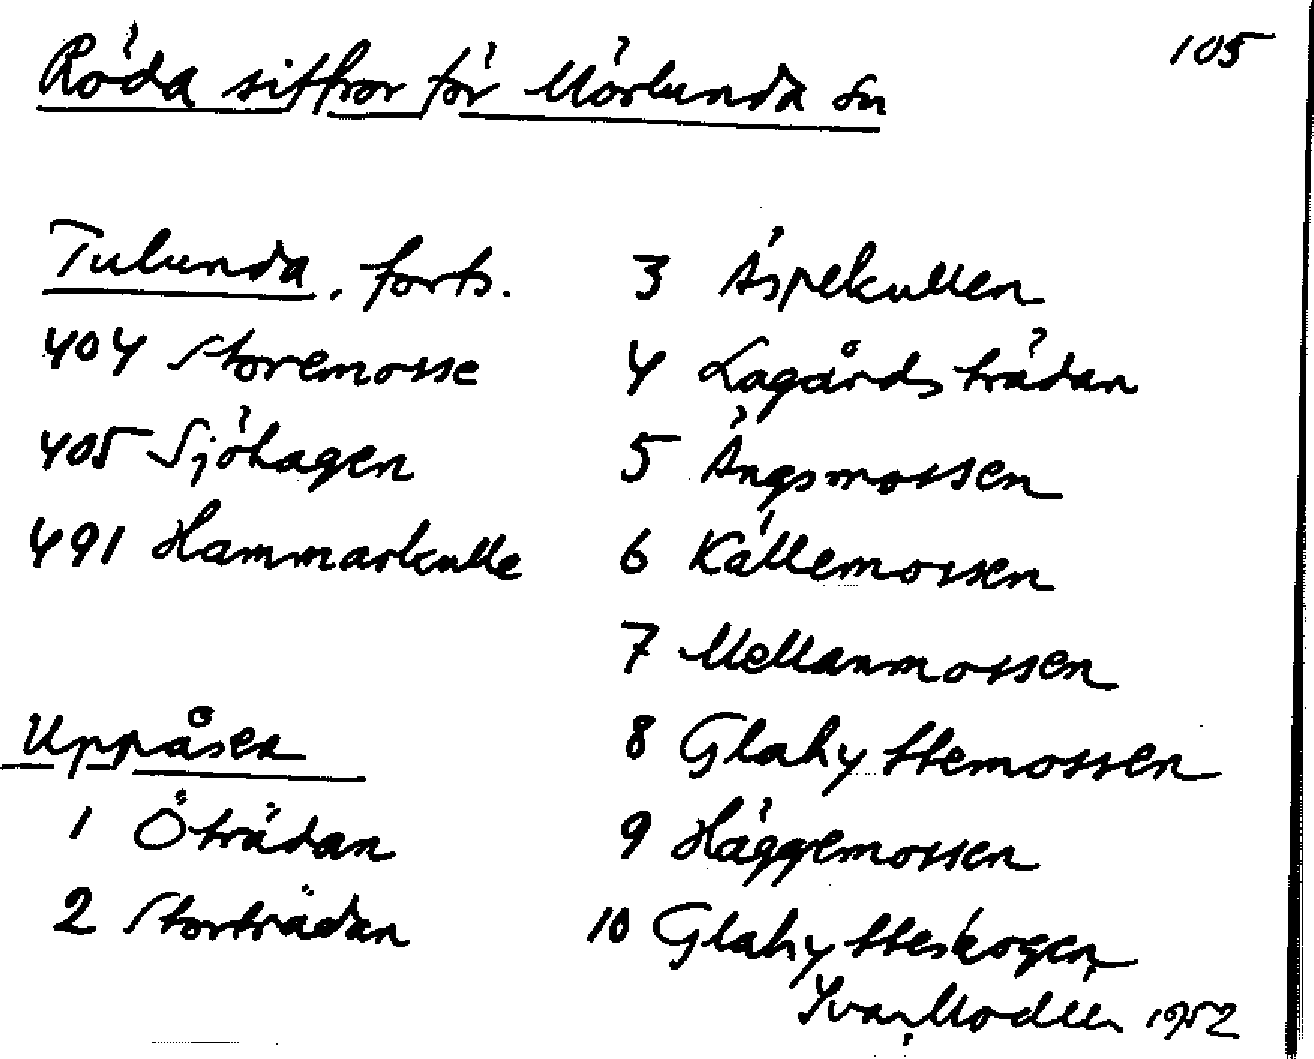 105
Röda siffror för Mörlunda sn
Tulunda, forts.
404 Storemosse
405 Sjöhagen
491 Hammarkulle
Uppåsen
1 Öträdan
2 Storträdan
3 Äspekullen
4 Lagårdsträdan
5 Ängsmossen
6 Källemossen
7 Mellanmossen
8 Glahyttemossen
9 Häggemossen
10 Glahytteskogen
Ivar Modéer 1952